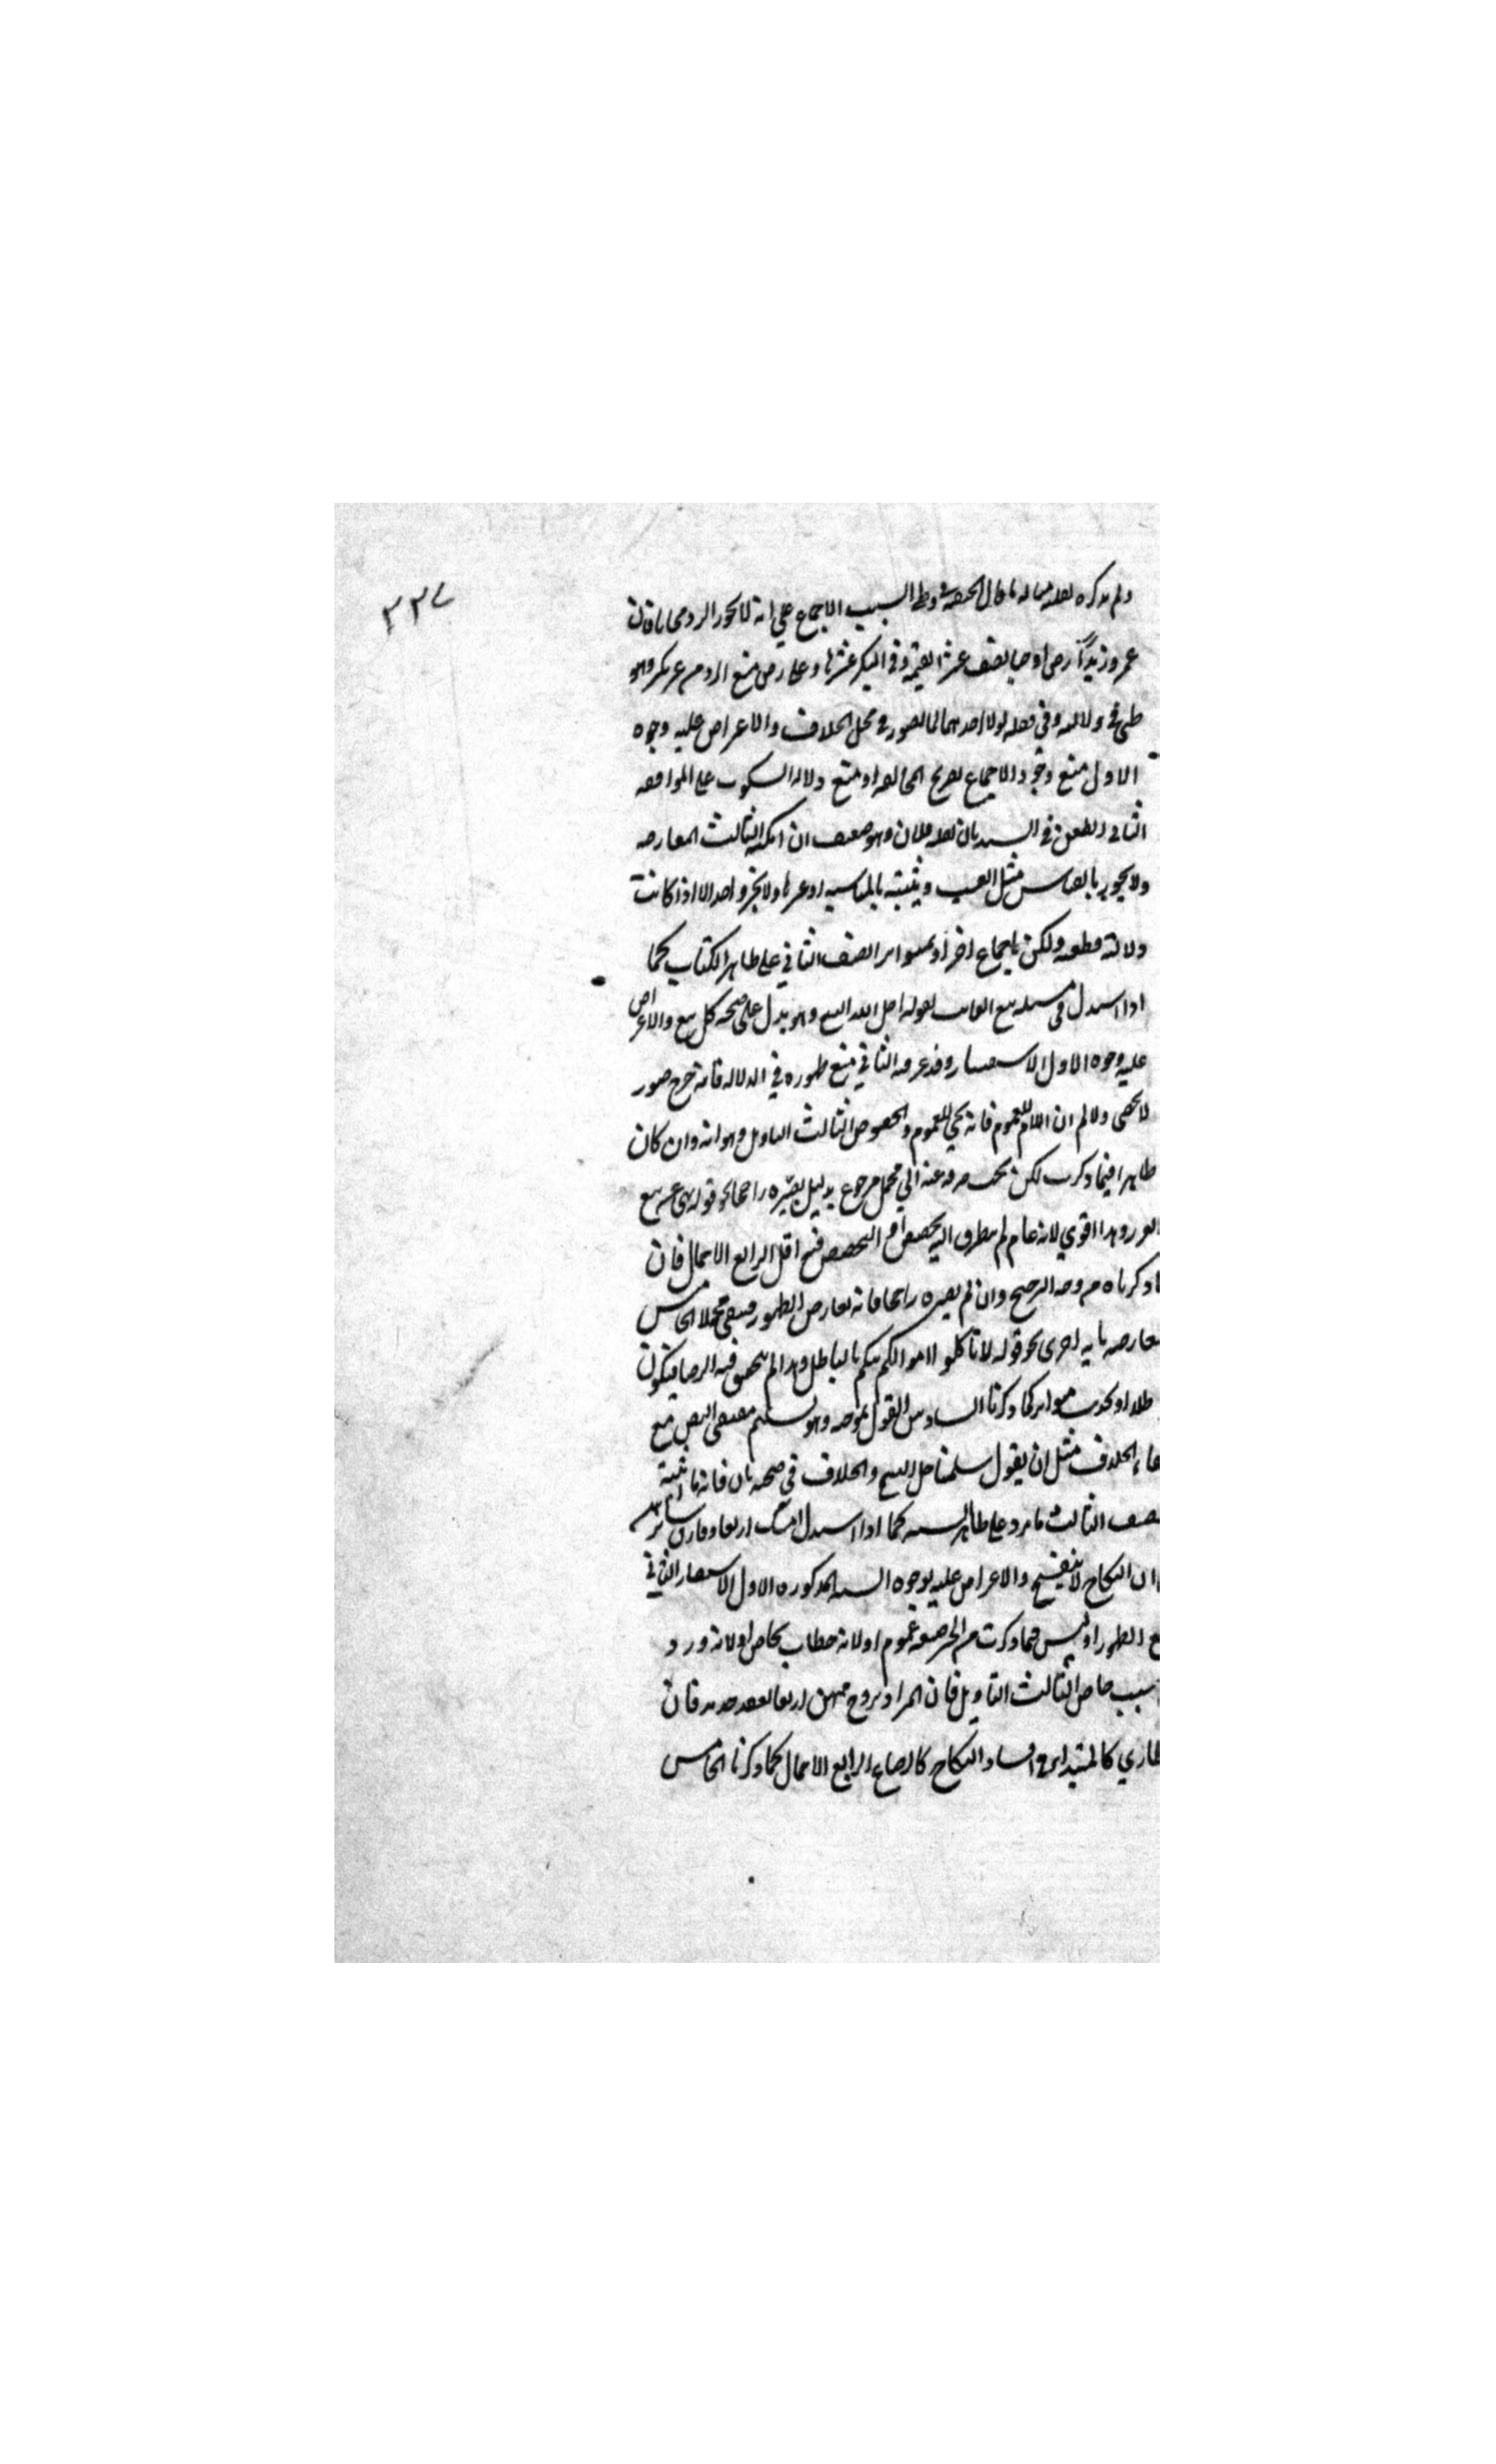 ٣٣٧
ولم يذكره لعدم مثاله ما قال الحنفية في وطء الثيب الاجماع على انه لا يجوز الرد مجانا فان
عمر وزيدا اوجبا نصف عشر القيمة وفي البكر عشرها وعلي رضي منع الرد من غير نكير وهو
ظني في دلالته وفي نقله لولا احدهما لما تصور في محل الخلاف والاعتراض عليه وجوه
الاول منع وجود الاجماع بصريح المخالفة او منع دلالة السكوت على الموافقة
الثاني الطعن في السند بان نقله فلان وهو ضعيف ان امكنه الثالث المعارضة
ولا يجوز بالقياس مثل العيب ويثبته بالمناسبة او غيرها ولا بخبر واحد الا اذا كانت
دلالته قطعية ولكن باجماع اخر او بمتواتر الصنف الثاني على ظاهر الكتاب كما
اذا استدل في مسئلة بيع الغائب بقوله احل الله البيع وهو يدل على صحة كل بيع والاعتراض
عليه وجوه الاول الاستفسار وقد عرفته الثاني منع ظهوره في الدلالة فانه خرج صور
لا تحصى ولا نسلم ان اللام للعموم فانه يجي للعموم والخصوص الثالث التاويل وهو انه وان كان
ظاهرا فيما ذكرت لكن يجب صرفه عنه الي محمل مرجوح بدليل يصيره راجحا نحو قوله نهى عن بيع
الغرر وهذا اقوي لانه عام لم يتطرق اليه تخصيص او التخصيص فيه اقل الرابع الاجمال فان
ما ذكرناه من وجه الترجيح وان لم يصيره راجحا فانه يعارض الظهور فيبقى مجملا الخامس
المعارضة باية اخرى نحو قوله لا تاكلوا اموالكم بينكم بالباطل وهذا لم يتحقق فيه الرضا فيكون
باطلا او بحديث متواتر كما ذكرنا السادس القول بموجبه وهو تسليم مقتضى النص مع
بقاء الخلاف مثل ان يقول سلمنا حل البيع والخلاف في صحته باق فانه ما اثبته
الصنف الثالث ما يرد على ظاهر السنة كما اذا استدل امسك اربعا وفارق سائرهن
على ان النكاح لا ينفسخ والاعتراض عليه بوجوه الستة المذكورة الاول الاستفسار الثاني
منع الظهور اذ ليس فيما ذكرت من الخبر صيغة عموم او لانه خطاب بخاص او لانه ورد
على سبب خاص الثالث التاويل فان المراد تزوج منهن اربعا بعقد جديد فان
الطاري كالمبتدا في افساد النكاح كالرضاع الرابع الاجمال كما ذكرنا الخامس